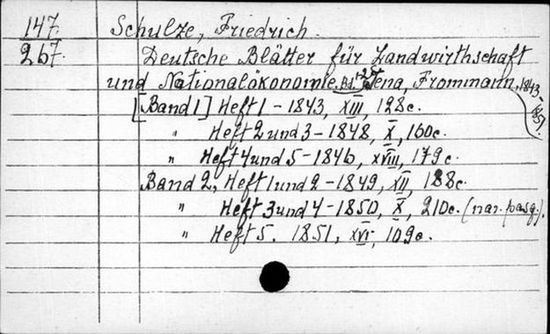 147. Schulze, Friedrich.
267. Deutsche Blätter für Landwirthschaft
und Nationalökonomie. Bd. 1-2. Jena, Frommann, 1843-1851.
[Band 1] Heft 1 - 1843, XIII, 128c.
" Heft 2 und 3 - 1848, X, 160c.
" Heft 4 und 5 - 1846, XVIII, 179c.
Band 2, Heft 1 und 2 - 1849, XII, 188c.
" Heft 3 und 4 - 1850, X, 210c. (паг. разд.).
" Heft 5. 1851, XVI, 109c.